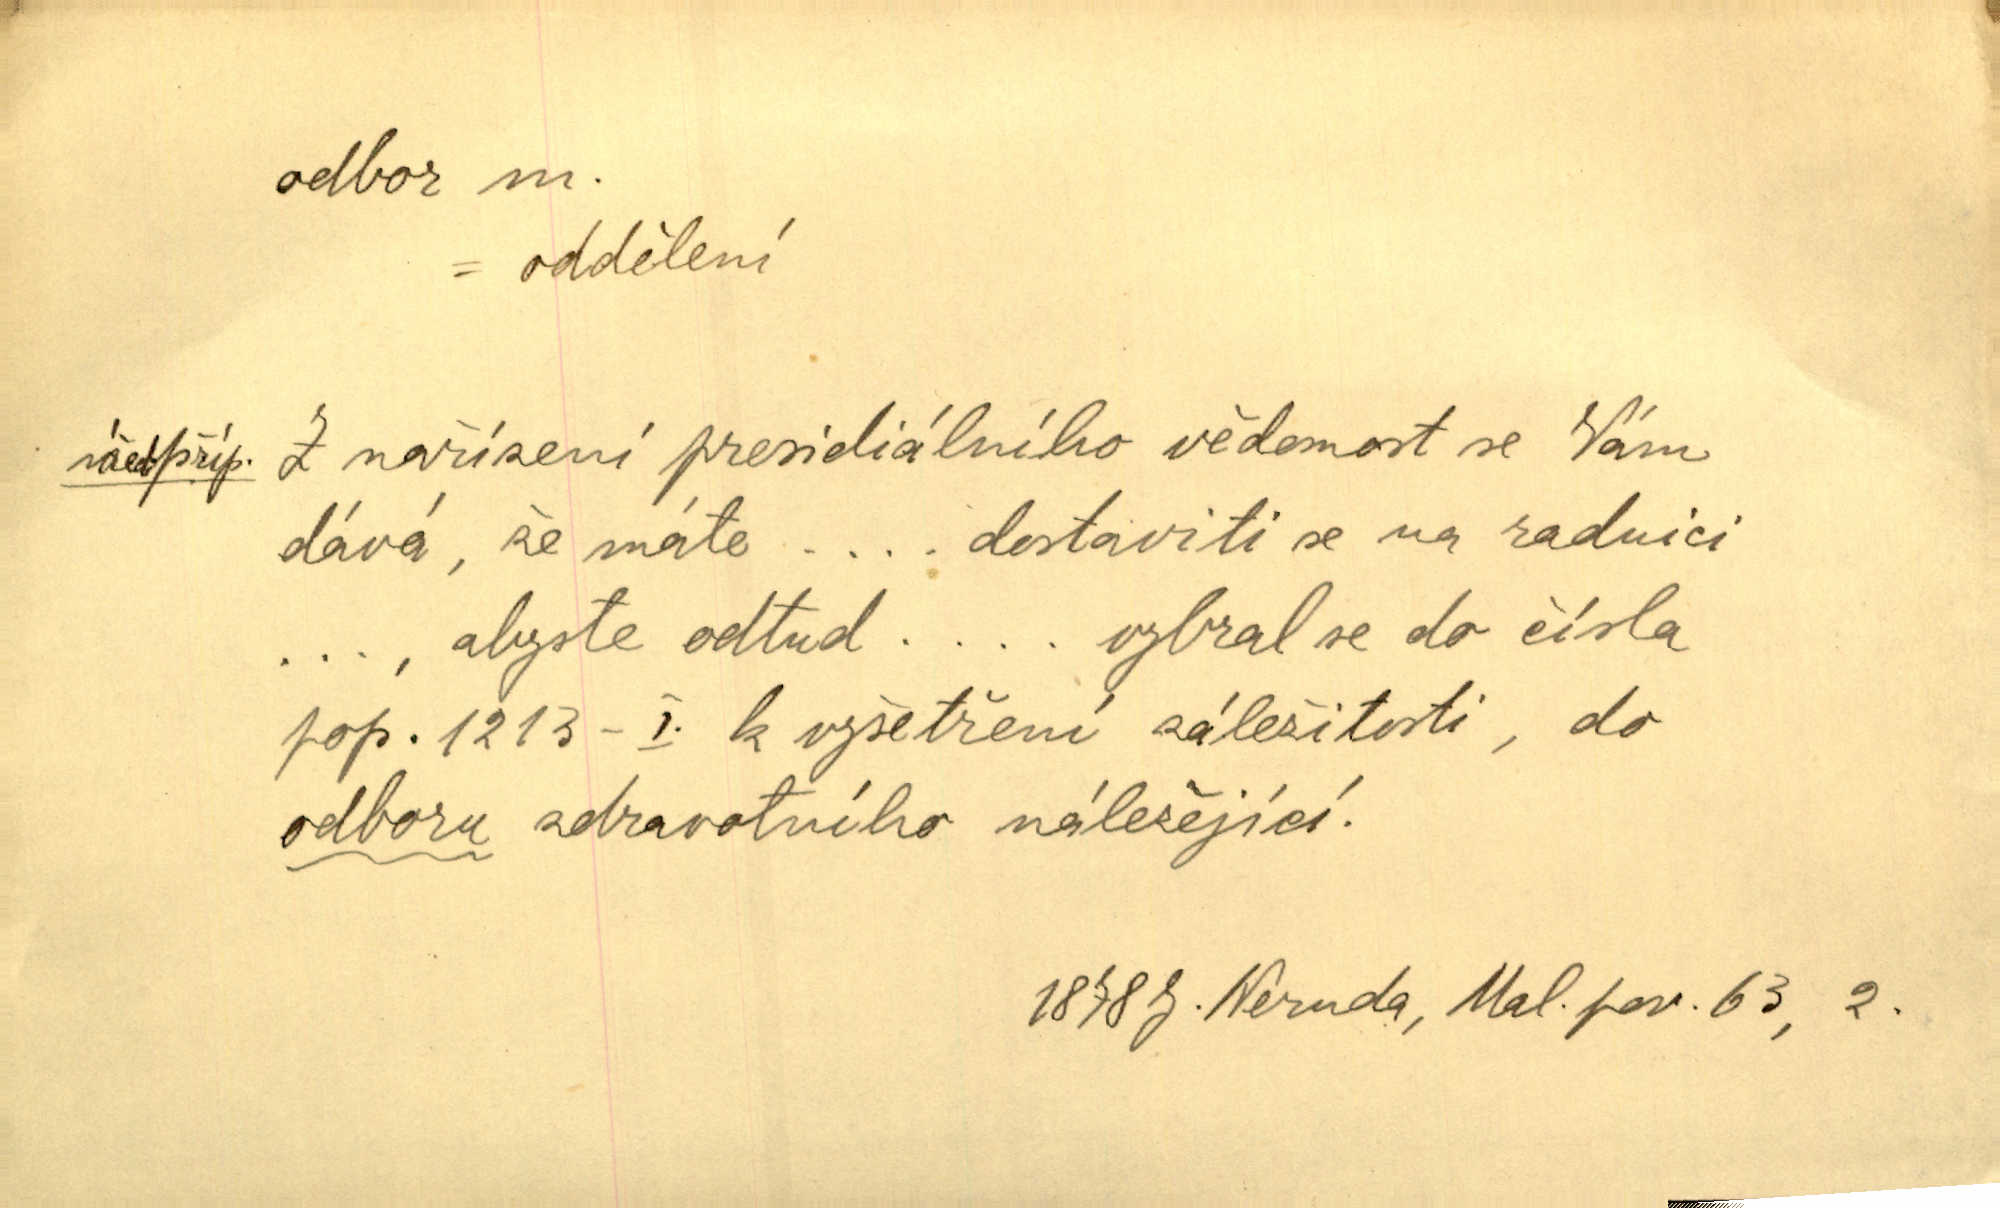 odbor m.
= oddělení
úřed. příp. Z nařízení presidiálního vědomost se Vám
dává, že máte .... dostaviti se na radnici
...., abyste odtud .... vybral se do čísla
pop. 1213 - I. k vyšetření záležitosti, do
odboru zdravotního náležející.
1878 J. Neruda, Mal. pov. 63, 2.